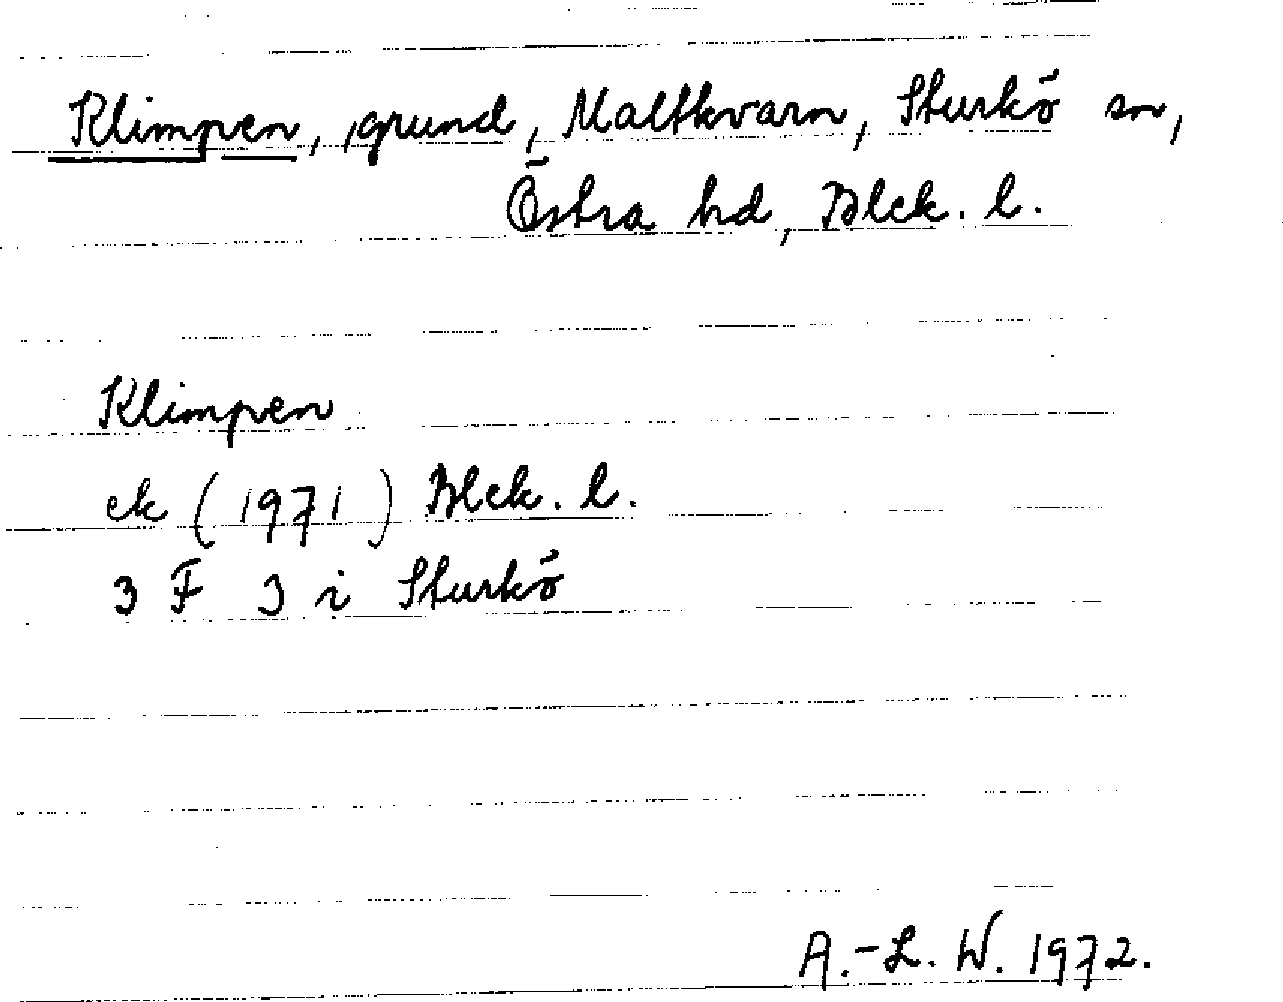 Klimpen, grund, Maltkvarn, Sturkö sn,
Östra hd, Blek. l.
Klimpen
ek (1971) Blek. l.
3 F J i Sturkö
A.-L. W. 1972.